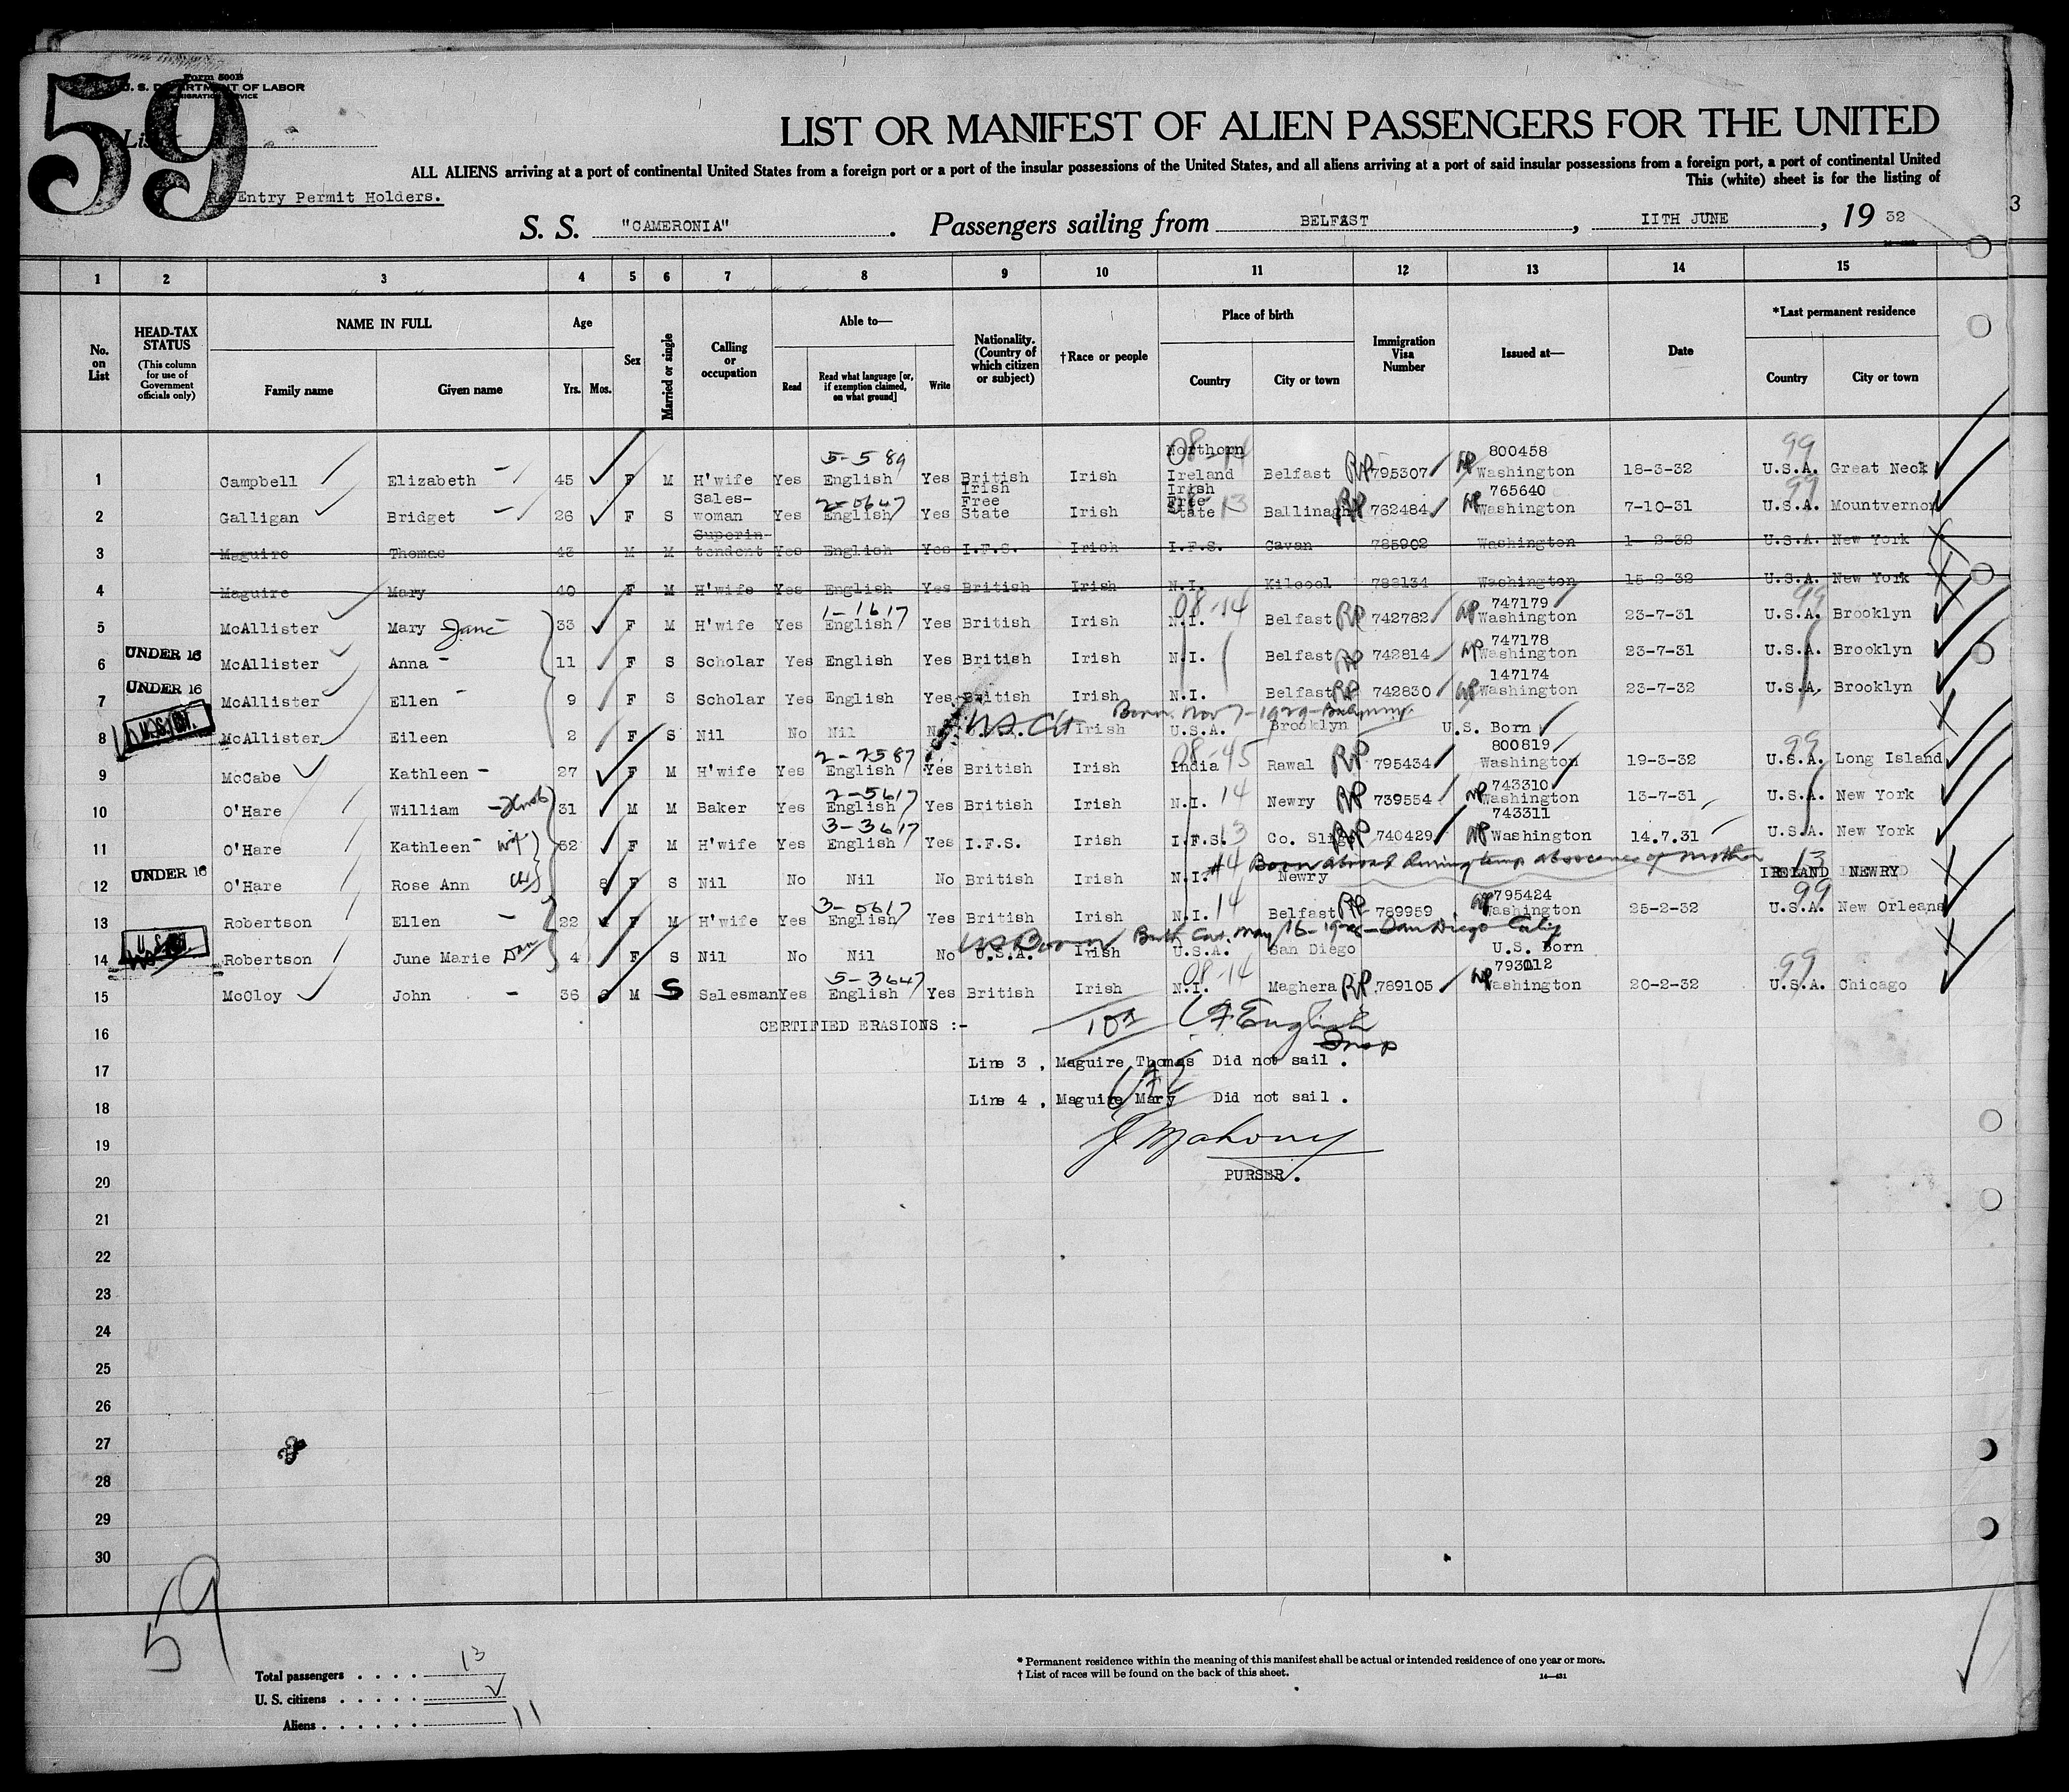 59
Form 500B
U. S. DEPARTMENT OF LABOR
IMMIGRATION SERVICE
List
LIST OR MANIFEST OF ALIEN PASSENGERS FOR THE UNITED
ALL ALIENS arriving at a port of continental United States from a foreign port or a port of the insular possessions of the United States, and all aliens arriving at a port of said insular possessions from a foreign port, a port of continental United
This (white) sheet is for the listing of
Re-Entry Permit Holders.
3
S. S. "CAMERONIA". Passengers sailing from BELFAST, 11TH JUNE, 19 32
1 2 3 4 5 6 7 8 9 10 11 12 13 14 15
No. on List
HEAD-TAX STATUS
(This column for use of Government officials only)
NAME IN FULL
Family name Given name
Age
Yrs. Mos.
Sex
Married or single
Calling or occupation
Able to—
Read
Read what language [or, if exemption claimed, on what ground]
Write
Nationality. (Country of which citizen or subject)
†Race or people
Place of birth
Country City or town
Immigration Visa Number
Issued at—
Date
*Last permanent residence
Country City or town
1 Campbell Elizabeth 45 F M H'wife Yes 5-5 89 English Yes British Irish Northern Ireland 08-14 Belfast RP 795307 800458 Washington 18-3-32 99 U.S.A. Great Neck
2 Galligan Bridget 26 F S Sales-woman Yes 2-0647 English Yes Irish Free State Irish Irish Free State 13 Ballinagh RP 762484 765640 Washington 7-10-31 99 U.S.A. Mountvernon
3 Maguire Thomas 43 M M Superin-tendent Yes English Yes I.F.S. Irish I.F.S. Cavan 785902 Washington 1-2-32 U.S.A. New York
4 Maguire Mary 40 F M H'wife Yes English Yes British Irish N.I. Kilcool 788134 Washington 15-2-32 U.S.A. New York
5 McAllister Mary Jane 33 F M H'wife Yes 1-1617 English Yes British Irish 08-14 N.I. Belfast RP 742782 747179 Washington 23-7-31 99 U.S.A. Brooklyn
6 UNDER 16 McAllister Anna 11 F S Scholar Yes English Yes British Irish N.I. Belfast RP 742814 747178 Washington 23-7-31 U.S.A. Brooklyn
7 UNDER 16 McAllister Ellen 9 F S Scholar Yes English Yes British Irish N.I. Belfast RP 742830 147174 Washington 23-7-32 U.S.A. Brooklyn
8 McAllister Eileen 2 F S Nil No Nil No U.S. Cit Irish Born Nov 7-1929- U.S.A. Brooklyn U.S. Born
9 McCabe Kathleen 27 F M H'wife Yes 2-2587 English Yes British Irish 08-45 India Rawal RP 795434 800819 Washington 19-3-32 99 U.S.A. Long Island
10 O'Hare William 31 M M Baker Yes 2-5617 English Yes British Irish N.I. 14 Newry RP 739554 743310 Washington 13-7-31 U.S.A. New York
11 O'Hare Kathleen wife 32 F M H'wife Yes 3-3617 English Yes I.F.S. Irish I.F.S. 13 Co. Sligo RP 740429 743311 Washington 14.7.31 U.S.A. New York
12 UNDER 16 O'Hare Rose Ann 8 F S Nil No Nil No British Irish N.I. #4 Born abroad during temp absence of mother Newry 13 IRELAND NEWRY
13 Robertson Ellen 22 F M H'wife Yes 3-0617 English Yes British Irish N.I. 14 Belfast RP 789959 795424 Washington 25-2-32 99 U.S.A. New Orleans
14 Robertson June Marie Dau 4 F S Nil No Nil No US Born U.S.A. Irish Birth Cert. May 16-1928-San Diego Calif U.S.A. San Diego U.S. Born
15 McCloy John 36 M S Salesman Yes 5-3647 English Yes British Irish 08-14 N.I. Maghera RP 789105 793112 Washington 20-2-32 99 U.S.A. Chicago
16 CERTIFIED ERASIONS :- English Insp
17 Line 3 , Maguire Thomas Did not sail .
18 Line 4 , Maguire Mary Did not sail .
19 J Mahony
20 PURSER .
21
22
23
24
25
26
27
28
29
30
59
Total passengers 13
U. S. citizens
Aliens 11
* Permanent residence within the meaning of this manifest shall be actual or intended residence of one year or more.
† List of races will be found on the back of this sheet.
14—431